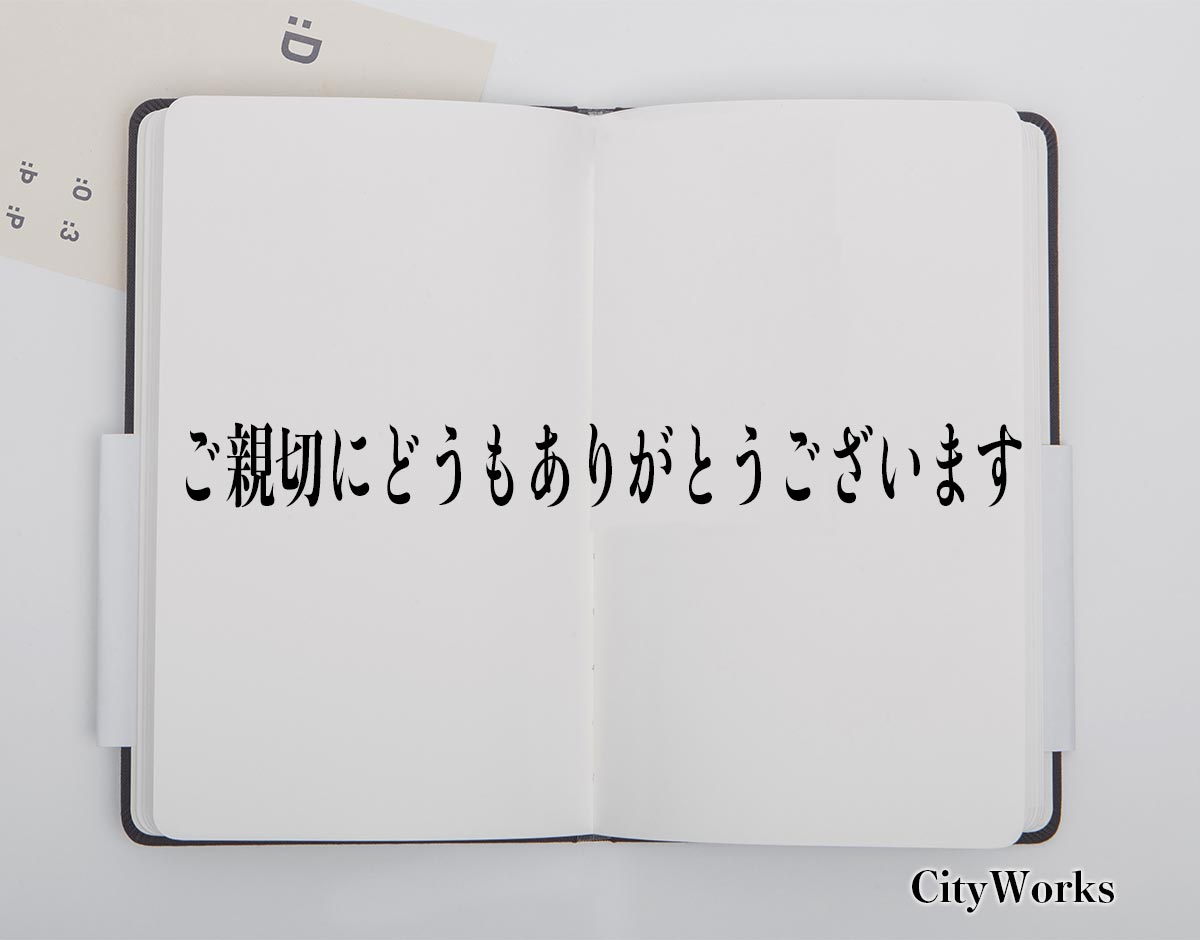 :D
:P :O
:P :3
ご親切にどうもありがとうございます
CityWorks